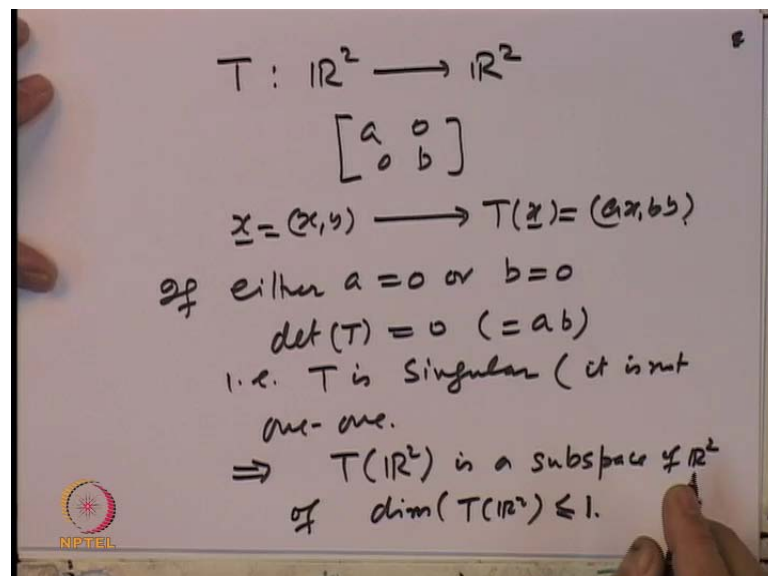 T : ℝ² ⟶ ℝ²
[ a 0
0 b ]
x̲ = (x,y) ⟶ T(x̲) = (ax, by)
If either a = 0 or b = 0
det (T) = 0 ( = ab)
i.e. T is Singular ( it is not
one-one.
⇒ T(ℝ²) is a subspace of ℝ²
of dim( T(ℝ²) ≤ 1.
NPTEL